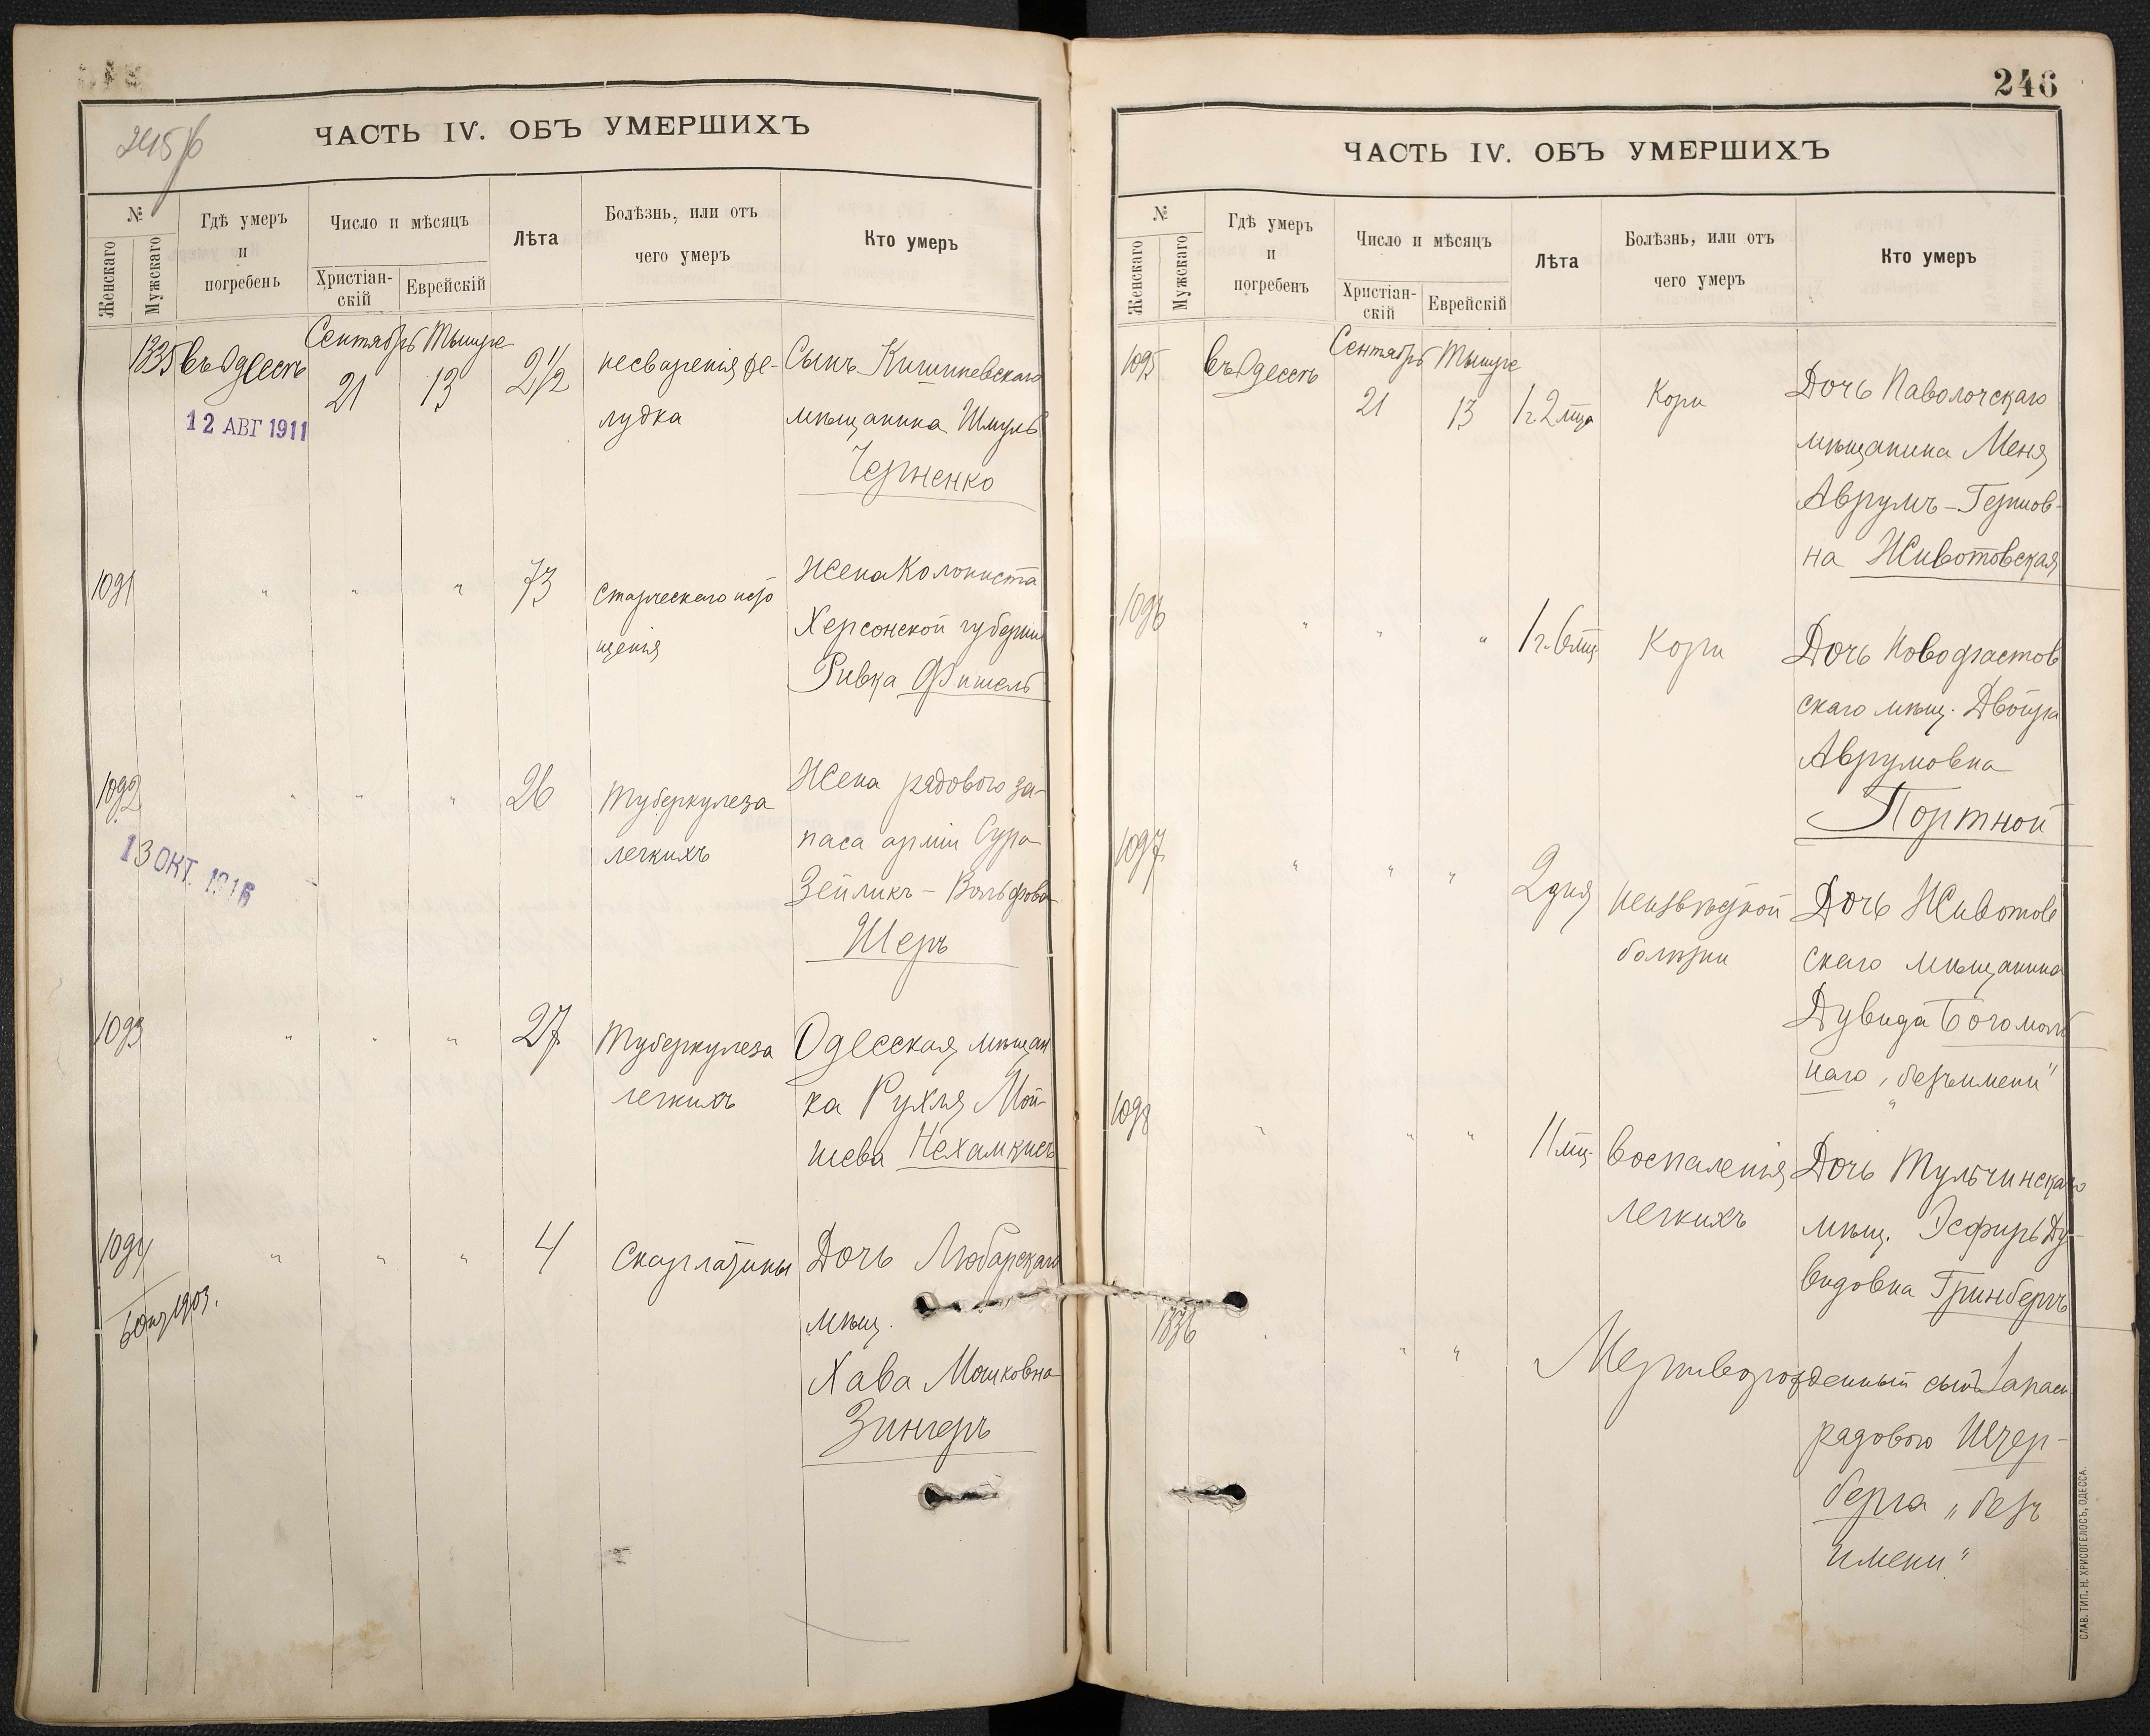 245 об
ЧАСТЬ IV. ОБЪ УМЕРШИХЪ
№
Женскаго
Мужскаго
Гдѣ умеръ
и
погребенъ
Число и мѣсяцъ
Христіан-
скій
Еврейскій
Лѣта
Болѣзнь, или отъ
чего умеръ
Кто умеръ
1335 въ Одессѣ Сентябрь 21 Тышре 13 2 1/2 несваренія же- Сынъ Кишиневскаго
12 АВГ 1911
лудка мѣщанина Шмуль
Черненко
1091 " " " 73 Старческаго исто Жена Колониста
щенія Херсонской губерніи
Ривка Фишель
1092 " " " 26 Туберкулеза Жена рядового за-
13 ОКТ. 1916
легкихъ паса арміи Сура
Зейликъ-Вольфова
Шеръ
1093 " " " 27 Туберкулеза Одесская мѣщан
легкихъ ка Рухля Мой-
шева Нехамкисъ
1094 " " " 4 Скарлатины Дочь Любарскаго
1903.
мѣщ.
Хава Мошковна
Зингеръ
246
ЧАСТЬ IV. ОБЪ УМЕРШИХЪ
№
Женскаго
Мужскаго
Гдѣ умеръ
и
погребенъ
Число и мѣсяцъ
Христіан-
скій
Еврейскій
Лѣта
Болѣзнь, или отъ
чего умеръ
Кто умеръ
1095 въ Одессѣ Сентябрь 21 Тышре 13 1 г. 2 мца Кори Дочь Паволочскаго
мѣщанина Меня
Аврумъ-Гершов-
на Животовская
1096 " " " 1 г. 6 мц Кори Дочь Новофастов
скаго мѣщ. Двойра
Аврумовна
Портной
1097 " " " 2 дня неизвѣстной Дочь Животов
болѣзни скаго мѣщанина
Дувида Богомоль
наго "безъ имени"
1098 " " " 11 мц. воспаленія Дочь Тульчинскаго
легкихъ мѣщ. Эсфирь Ду-
видовна Гринбергъ
1336 " " " Мертворожденный сынъ запасн
рядового Шер-
берга "безъ
имени"
СЛАВ. ТИП. Н. ХРИСОГЕЛОСЪ, ОДЕССА.